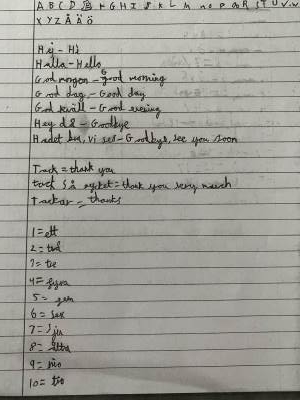 A B C D E F G H I J K L M N O P Q R S T U V W
X Y Z Å Ä Ö
Hej - Hi
Halla - Hello
God morgon - good morning
God dag - Good day
God kväll - Good evening
Hey då - Goodbye
Hadet bra, vi ses - Goodbye, see you soon
Tack = thank you
tack så mycket = thank you very much
Tackar - thanks
1 = ett
2 = två
3 = tre
4 = fyra
5 = fem
6 = sex
7 = sju
8 = åtta
9 = nio
10 = tio